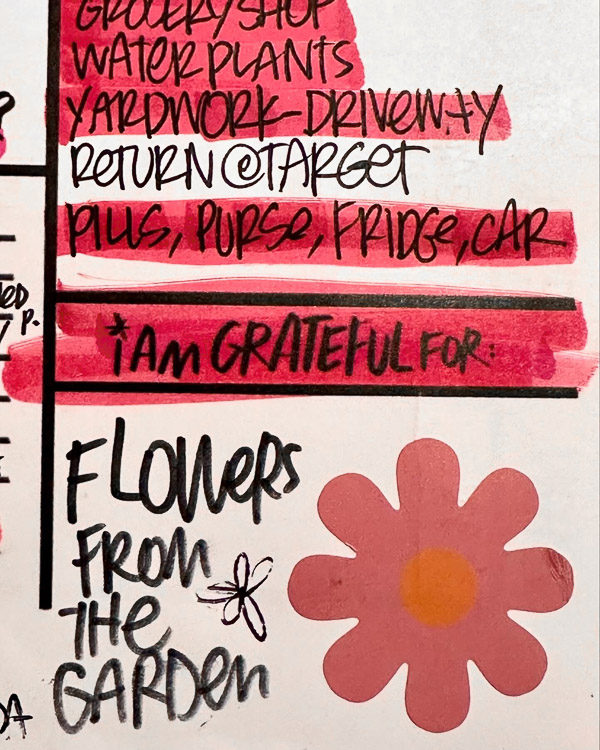 GROCERY SHOP
WATER PLANTS
YARDWORK - DRIVEWAY
RETURN @ TARGET
PILLS, PURSE, FRIDGE, CAR
*I AM GRATEFUL FOR:
FLOWERS
FROM
THE
GARDEN